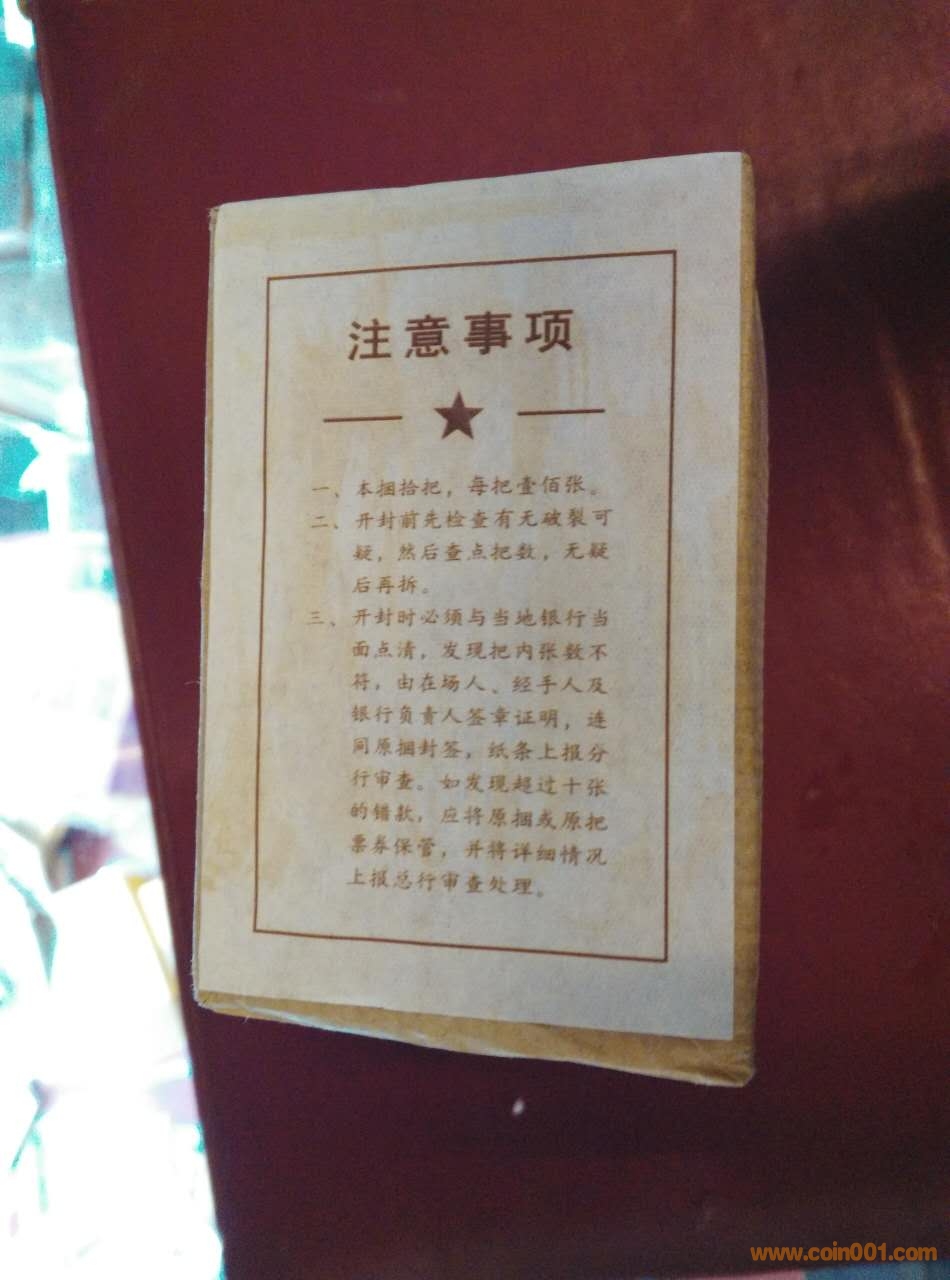 注意事项
一、本捆拾把，每把壹佰张。
二、开封前先检查有无破裂可
疑，然后查点把数，无疑
后再拆。
三、开封时必须与当地银行当
面点清，发现把内张数不
符，由在场人、经手人及
银行负责人签章证明，连
同原捆封签，纸条上报分
行审查。如发现超过十张
的错款，应将原捆或原把
票券保管，并将详细情况
上报总行审查处理。
www.coin001.com